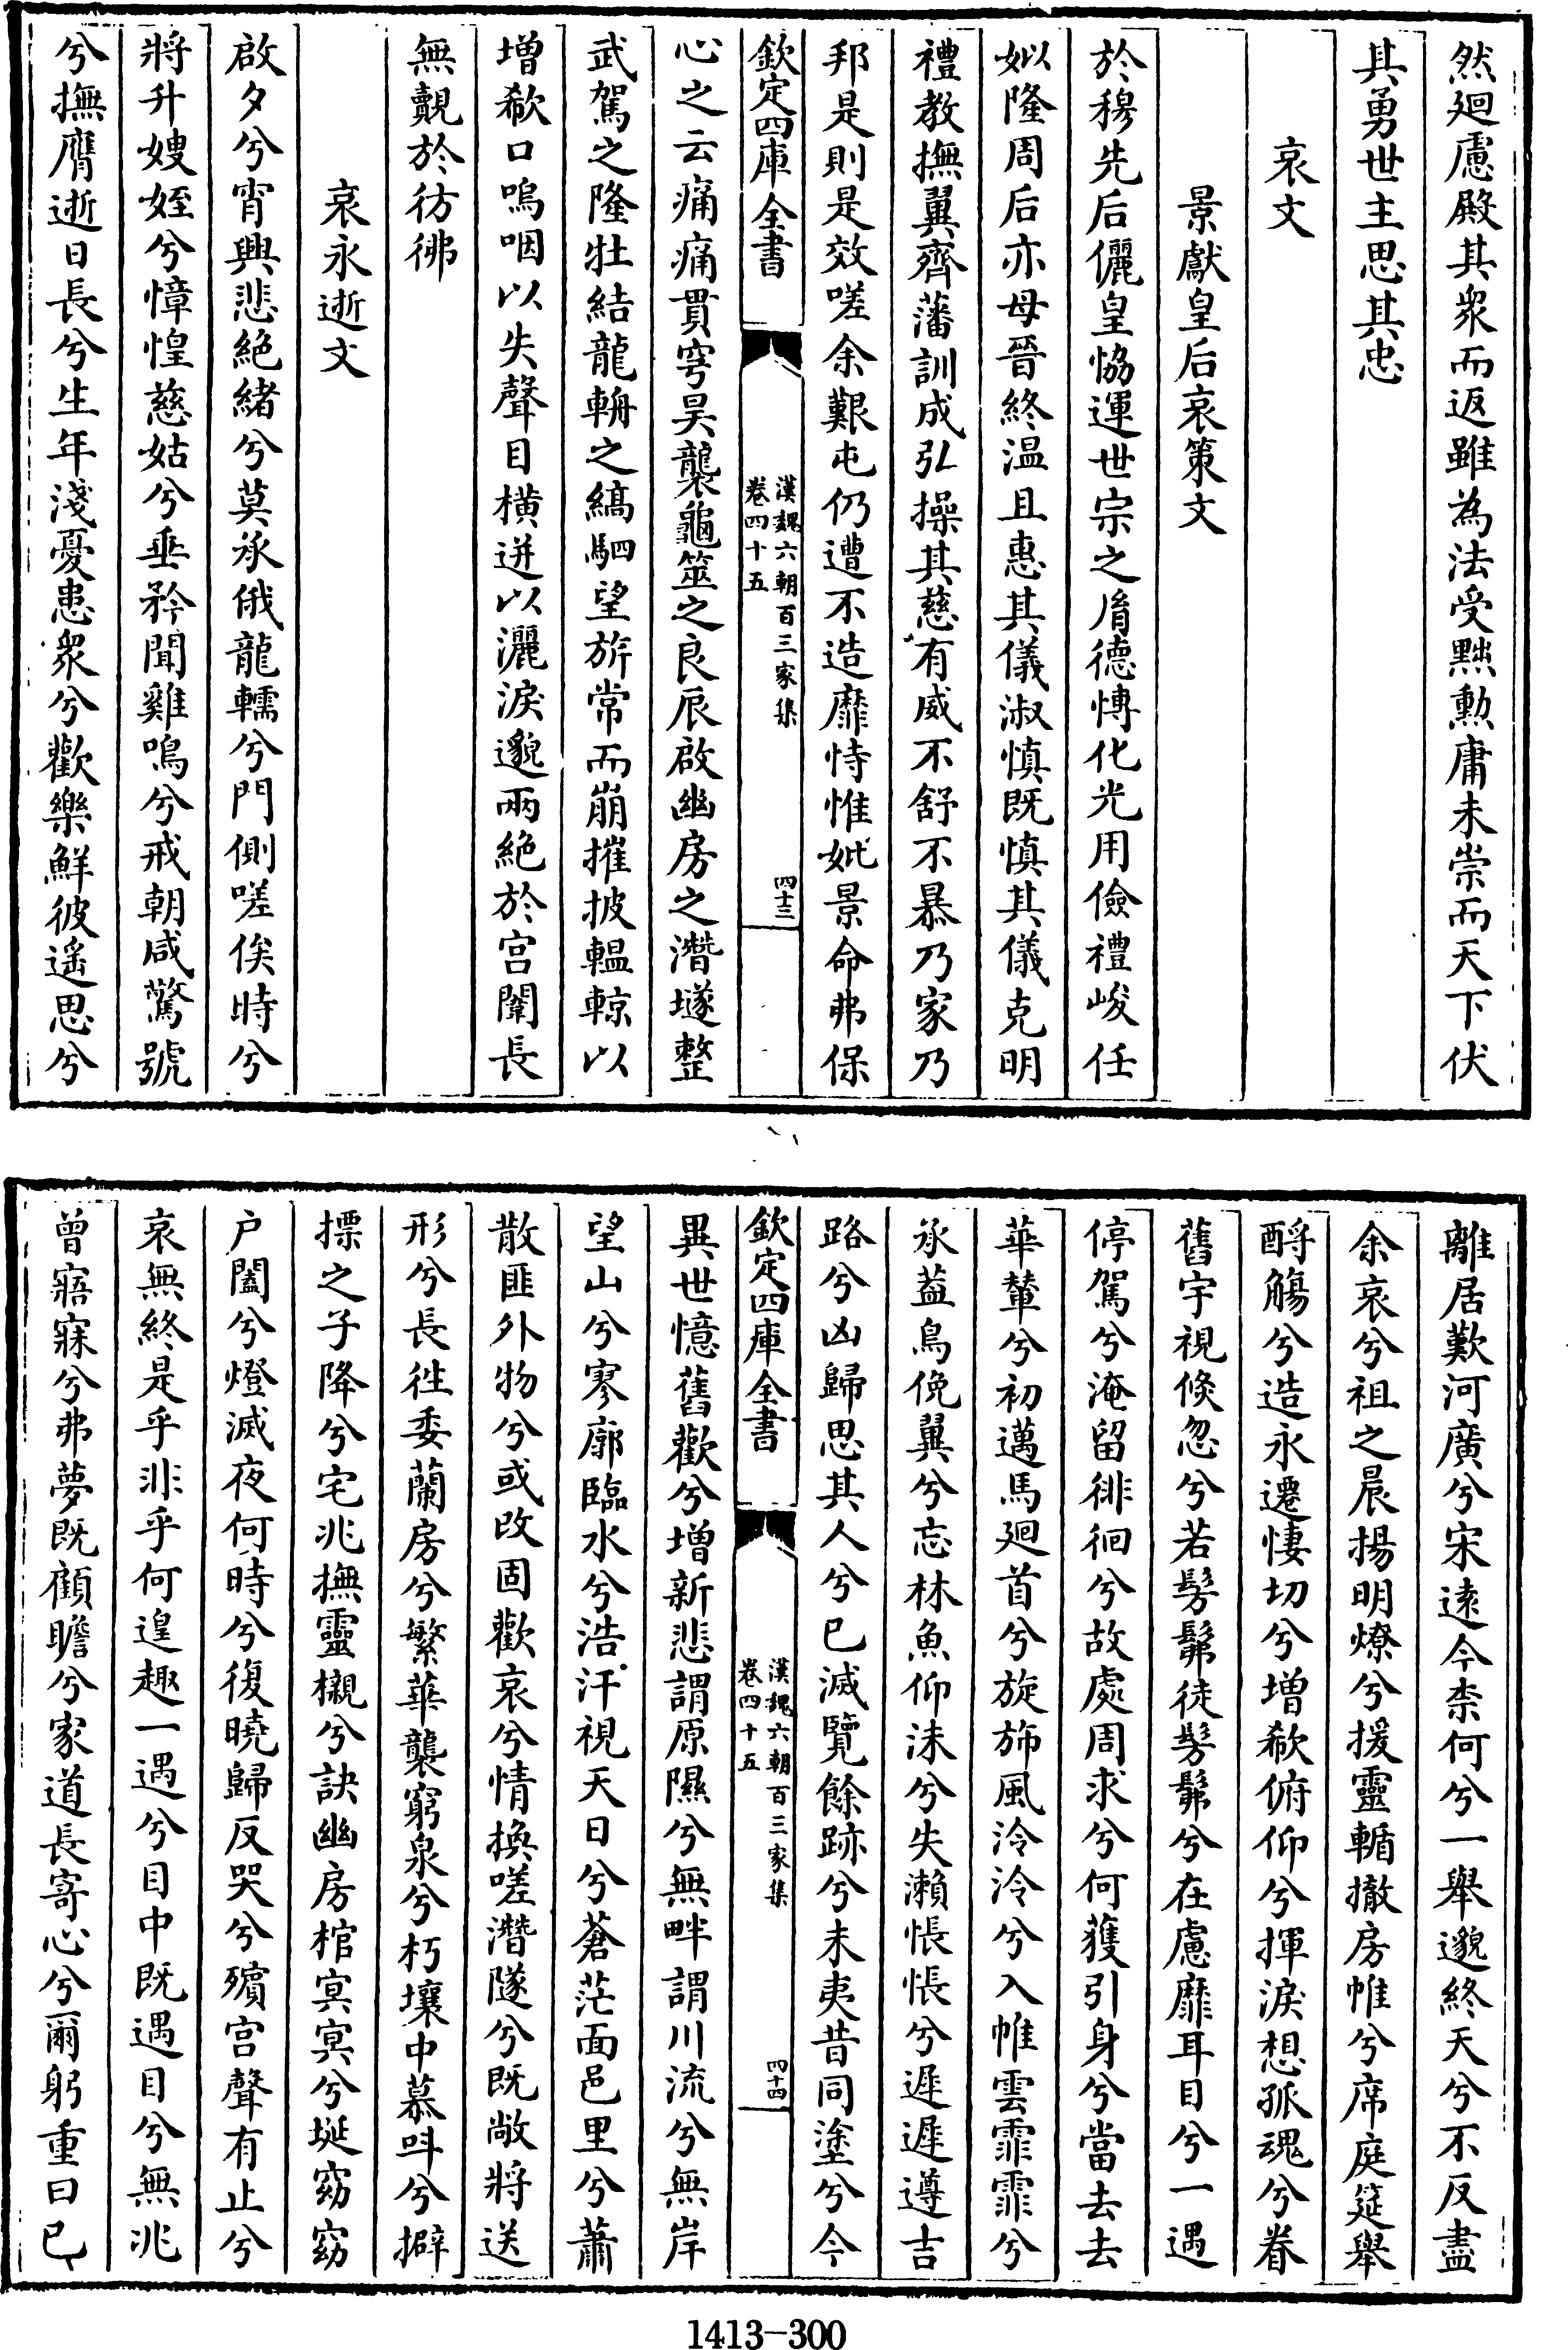 然廻慮殿其衆而返雖為法受黜勲庸未崇而天下伏
其勇世主思其忠
哀文
景獻皇后哀策文
於穆先后儷皇恊運世宗之胤德愽化光用儉禮峻任
姒隆周后亦母晉終温且惠其儀淑慎既慎其儀克明
禮教撫翼齊藩訓成弘操其慈有威不舒不暴乃家乃
邦是則是效嗟余艱屯仍遭不造靡恃惟妣景命弗保
欽定四庫全書
漢魏六朝百三家集
卷四十五
四十三
心之云痛痛貫穹昊襲龜筮之良辰啟幽房之潛墜整
武駕之隆牡結龍輈之縞駟望旂常而崩摧披轀輬以
增欷口嗚咽以失聲目横迸以灑淚邈兩絶於宫闈長
無覿於彷彿
哀永逝文
啟夕兮宵興悲絶緒兮莫承俄龍轜兮門側嗟俟時兮
將升嫂姪兮慞惶慈姑兮垂矜聞雞鳴兮戒朝咸驚號
兮撫膺逝日長兮生年淺憂患衆兮歡樂鮮彼遥思兮
離居歎河廣兮宋逺今柰何兮一舉邈終天兮不反盡
余哀兮祖之晨揚明燎兮援靈輴撤房帷兮席庭筵舉
酹觴兮造永遷悽切兮增欷俯仰兮揮淚想孤魂兮眷
舊宇視倐忽兮若髣髴徒髣髴兮在慮靡耳目兮一遇
停駕兮淹留徘徊兮故處周求兮何獲引身兮當去去
華輦兮初邁馬廻首兮旋斾風泠泠兮入帷雲霏霏兮
承葢鳥俛翼兮忘林魚仰沬兮失瀨悵悵兮遲遲遵吉
路兮凶歸思其人兮已滅覽餘跡兮未夷昔同塗兮今
欽定四庫全書
漢魏六朝百三家集
卷四十五
四十四
異世憶舊歡兮增新悲謂原隰兮無畔謂川流兮無岸
望山兮寥廓臨水兮浩汗視天日兮蒼茫面邑里兮蕭
散匪外物兮或改固歡哀兮情換嗟潛隧兮既敞將送
形兮長徃委蘭房兮繁華襲窮泉兮朽壤中慕呌兮擗
摽之子降兮宅兆撫靈櫬兮訣幽房棺冥冥兮埏窈窈
户闔兮燈滅夜何時兮復曉歸反哭兮殯宫聲有止兮
哀無終是乎非乎何遑趣一遇兮目中既遇目兮無兆
曾寤寐兮弗夢既顧瞻兮家道長寄心兮爾躬重曰已
1413-300